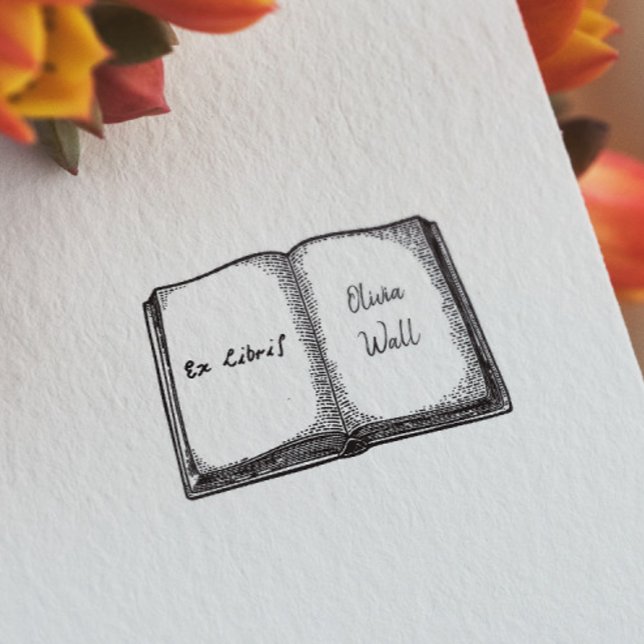 Ex Libris
Olivia
Wall